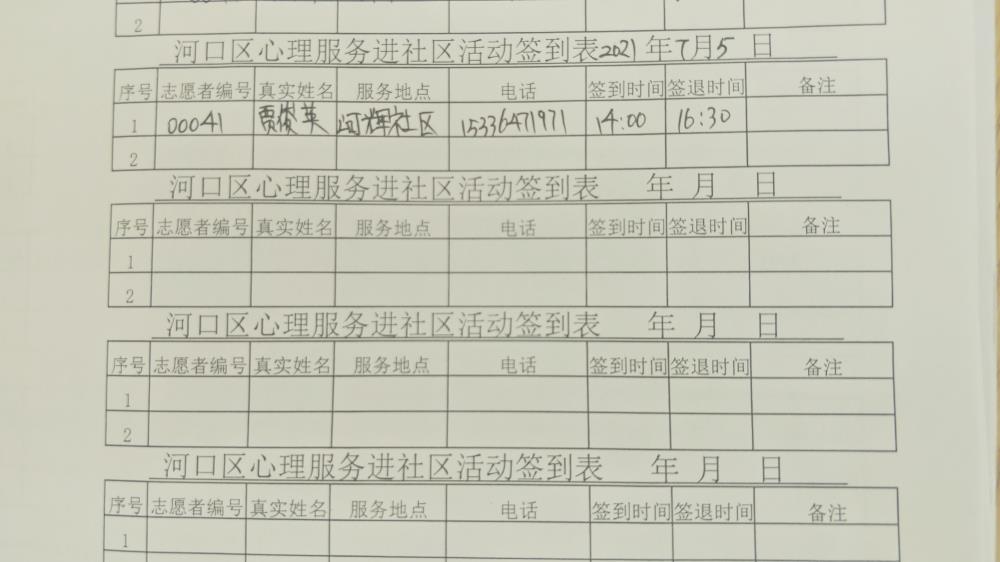 2
河口区心理服务进社区活动签到表2021年7月5日
序号 志愿者编号 真实姓名 服务地点 电话 签到时间 签退时间 备注
1 00041 贾俊英 河辉社区 15336471971 14:00 16:30
2
河口区心理服务进社区活动签到表 年 月 日
序号 志愿者编号 真实姓名 服务地点 电话 签到时间 签退时间 备注
1
2
河口区心理服务进社区活动签到表 年 月 日
序号 志愿者编号 真实姓名 服务地点 电话 签到时间 签退时间 备注
1
2
河口区心理服务进社区活动签到表 年 月 日
序号 志愿者编号 真实姓名 服务地点 电话 签到时间 签退时间 备注
1